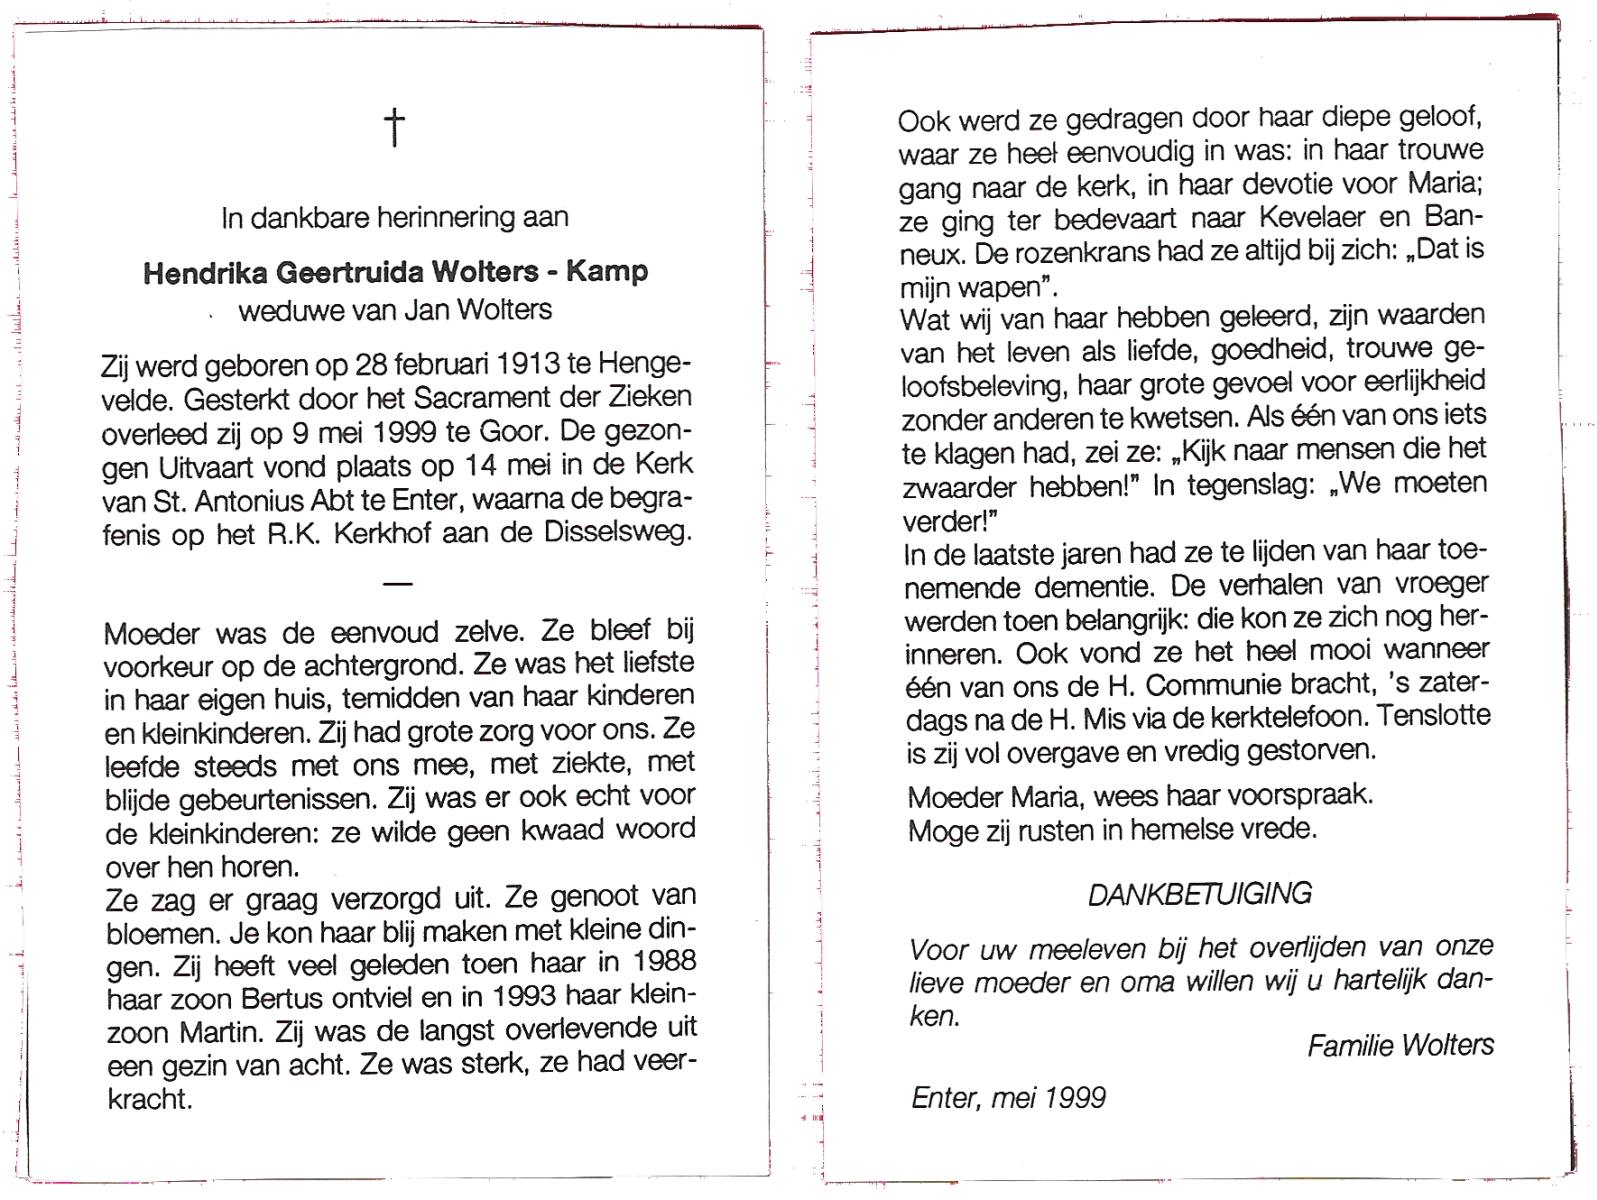 †
In dankbare herinnering aan
Hendrika Geertruida Wolters - Kamp
weduwe van Jan Wolters
Zij werd geboren op 28 februari 1913 te Henge-
velde. Gesterkt door het Sacrament der Zieken
overleed zij op 9 mei 1999 te Goor. De gezon-
gen Uitvaart vond plaats op 14 mei in de Kerk
van St. Antonius Abt te Enter, waarna de begra-
fenis op het R.K. Kerkhof aan de Disselsweg.
—
Moeder was de eenvoud zelve. Ze bleef bij
voorkeur op de achtergrond. Ze was het liefste
in haar eigen huis, temidden van haar kinderen
en kleinkinderen. Zij had grote zorg voor ons. Ze
leefde steeds met ons mee, met ziekte, met
blijde gebeurtenissen. Zij was er ook echt voor
de kleinkinderen: ze wilde geen kwaad woord
over hen horen.
Ze zag er graag verzorgd uit. Ze genoot van
bloemen. Je kon haar blij maken met kleine din-
gen. Zij heeft veel geleden toen haar in 1988
haar zoon Bertus ontviel en in 1993 haar klein-
zoon Martin. Zij was de langst overlevende uit
een gezin van acht. Ze was sterk, ze had veer-
kracht.
Ook werd ze gedragen door haar diepe geloof,
waar ze heel eenvoudig in was: in haar trouwe
gang naar de kerk, in haar devotie voor Maria;
ze ging ter bedevaart naar Kevelaer en Ban-
neux. De rozenkrans had ze altijd bij zich: „Dat is
mijn wapen”.
Wat wij van haar hebben geleerd, zijn waarden
van het leven als liefde, goedheid, trouwe ge-
loofsbeleving, haar grote gevoel voor eerlijkheid
zonder anderen te kwetsen. Als één van ons iets
te klagen had, zei ze: „Kijk naar mensen die het
zwaarder hebben!” In tegenslag: „We moeten
verder!”
In de laatste jaren had ze te lijden van haar toe-
nemende dementie. De verhalen van vroeger
werden toen belangrijk: die kon ze zich nog her-
inneren. Ook vond ze het heel mooi wanneer
één van ons de H. Communie bracht, 's zater-
dags na de H. Mis via de kerktelefoon. Tenslotte
is zij vol overgave en vredig gestorven.
Moeder Maria, wees haar voorspraak.
Moge zij rusten in hemelse vrede.
DANKBETUIGING
Voor uw meeleven bij het overlijden van onze
lieve moeder en oma willen wij u hartelijk dan-
ken.
Familie Wolters
Enter, mei 1999